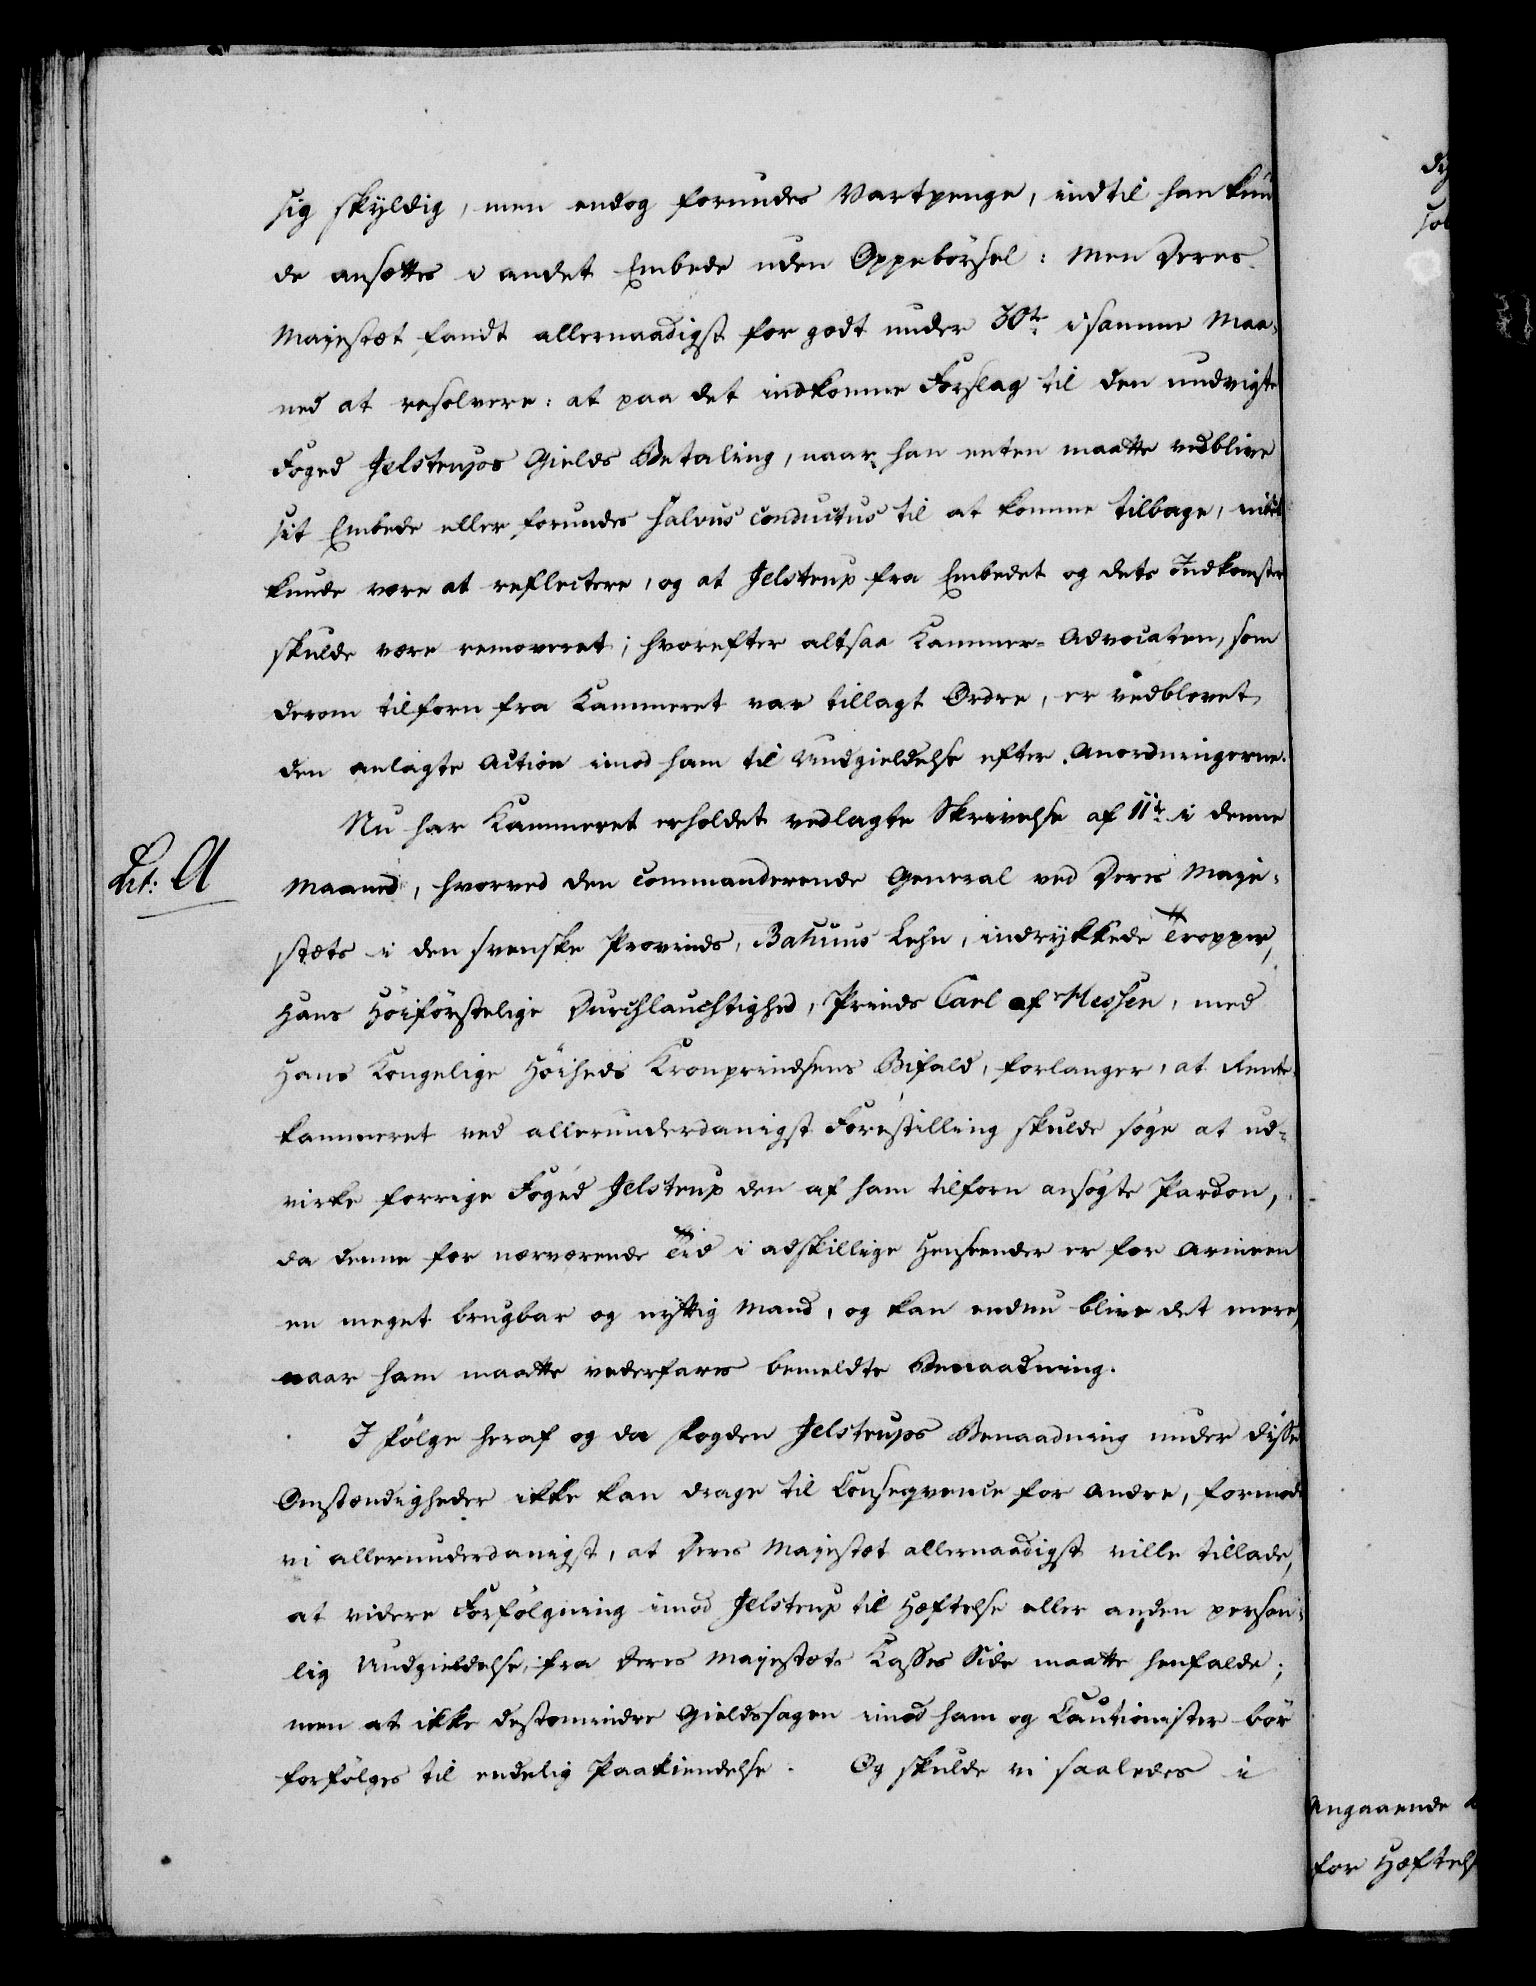 sig skyldig, men endog forundes Vartpenge, indtil han kun
de ansættes i andet Embede uden Oppebørsel: Men Deres
Majestæt fandt allernaadigst for godt under 30te i samme Maa-
ned at resolvere: at paa det indkomne Forslag til den undvigte
Foged Jelstrups Gields Betaling, naar han enten maatte vedblive
sit Embede eller forundes salvus conductus til at komme tilbage, intet
kunde være at reflectere, og at Jelstrup fra Embedet og dets Indkomster
skulde være removeret; hvorefter altsaa Kammer-Advocaten, som
derom tilforn fra Kammeret var tillagt Ordre, er vedblevet
den anlagte Action imod ham til Undgieldelse efter Anordningerne.
Nu har Kammeret erholdet vedlagte Skrivelse af 11te i denne
Lit: A
Maaned, hvorved den commanderende General ved Deres Maje-
stæts i den svenske Provinds, Bahuus Lehn, indrykkede Tropper,
Hans Høiførstelige Durchlauchtighed, Prinds Carl af Hessen, med
Hans Kongelige Høiheds Kronprindsens Bifald, forlanger, at Rente-
kammeret ved allerunderdanigst Forestilling skulde søge at ud-
virke forrige Foged Jelstrup den af ham tilforn ansøgte Pardon,
da denne for nærværende Tid i adskillige Henseender er for Armeen
en meget brugbar og nyttig Mand, og kan endnu blive det mere,
naar ham maatte vederfares bemeldte Benaadning.
I følge heraf og da Fogden Jelstrups Benaadning under disse
Omstændigheder ikke kan drage til Conseqvence for Andre, formode
vi allerunderdanigst, at Deres Majestæt allernaadigst ville tillade,
at videre Forfølgning imod Jelstrup til Hæftelse eller anden person-
lig Undgieldelse, fra Deres Majestæts Kasses Side maatte henfalde;
men at ikke destomindre Gieldssagen imod ham og Cautionister bør
forfølges til endelig Paakiendelse. Og skulde vi saaledes i
Angaaende
for Hæftels